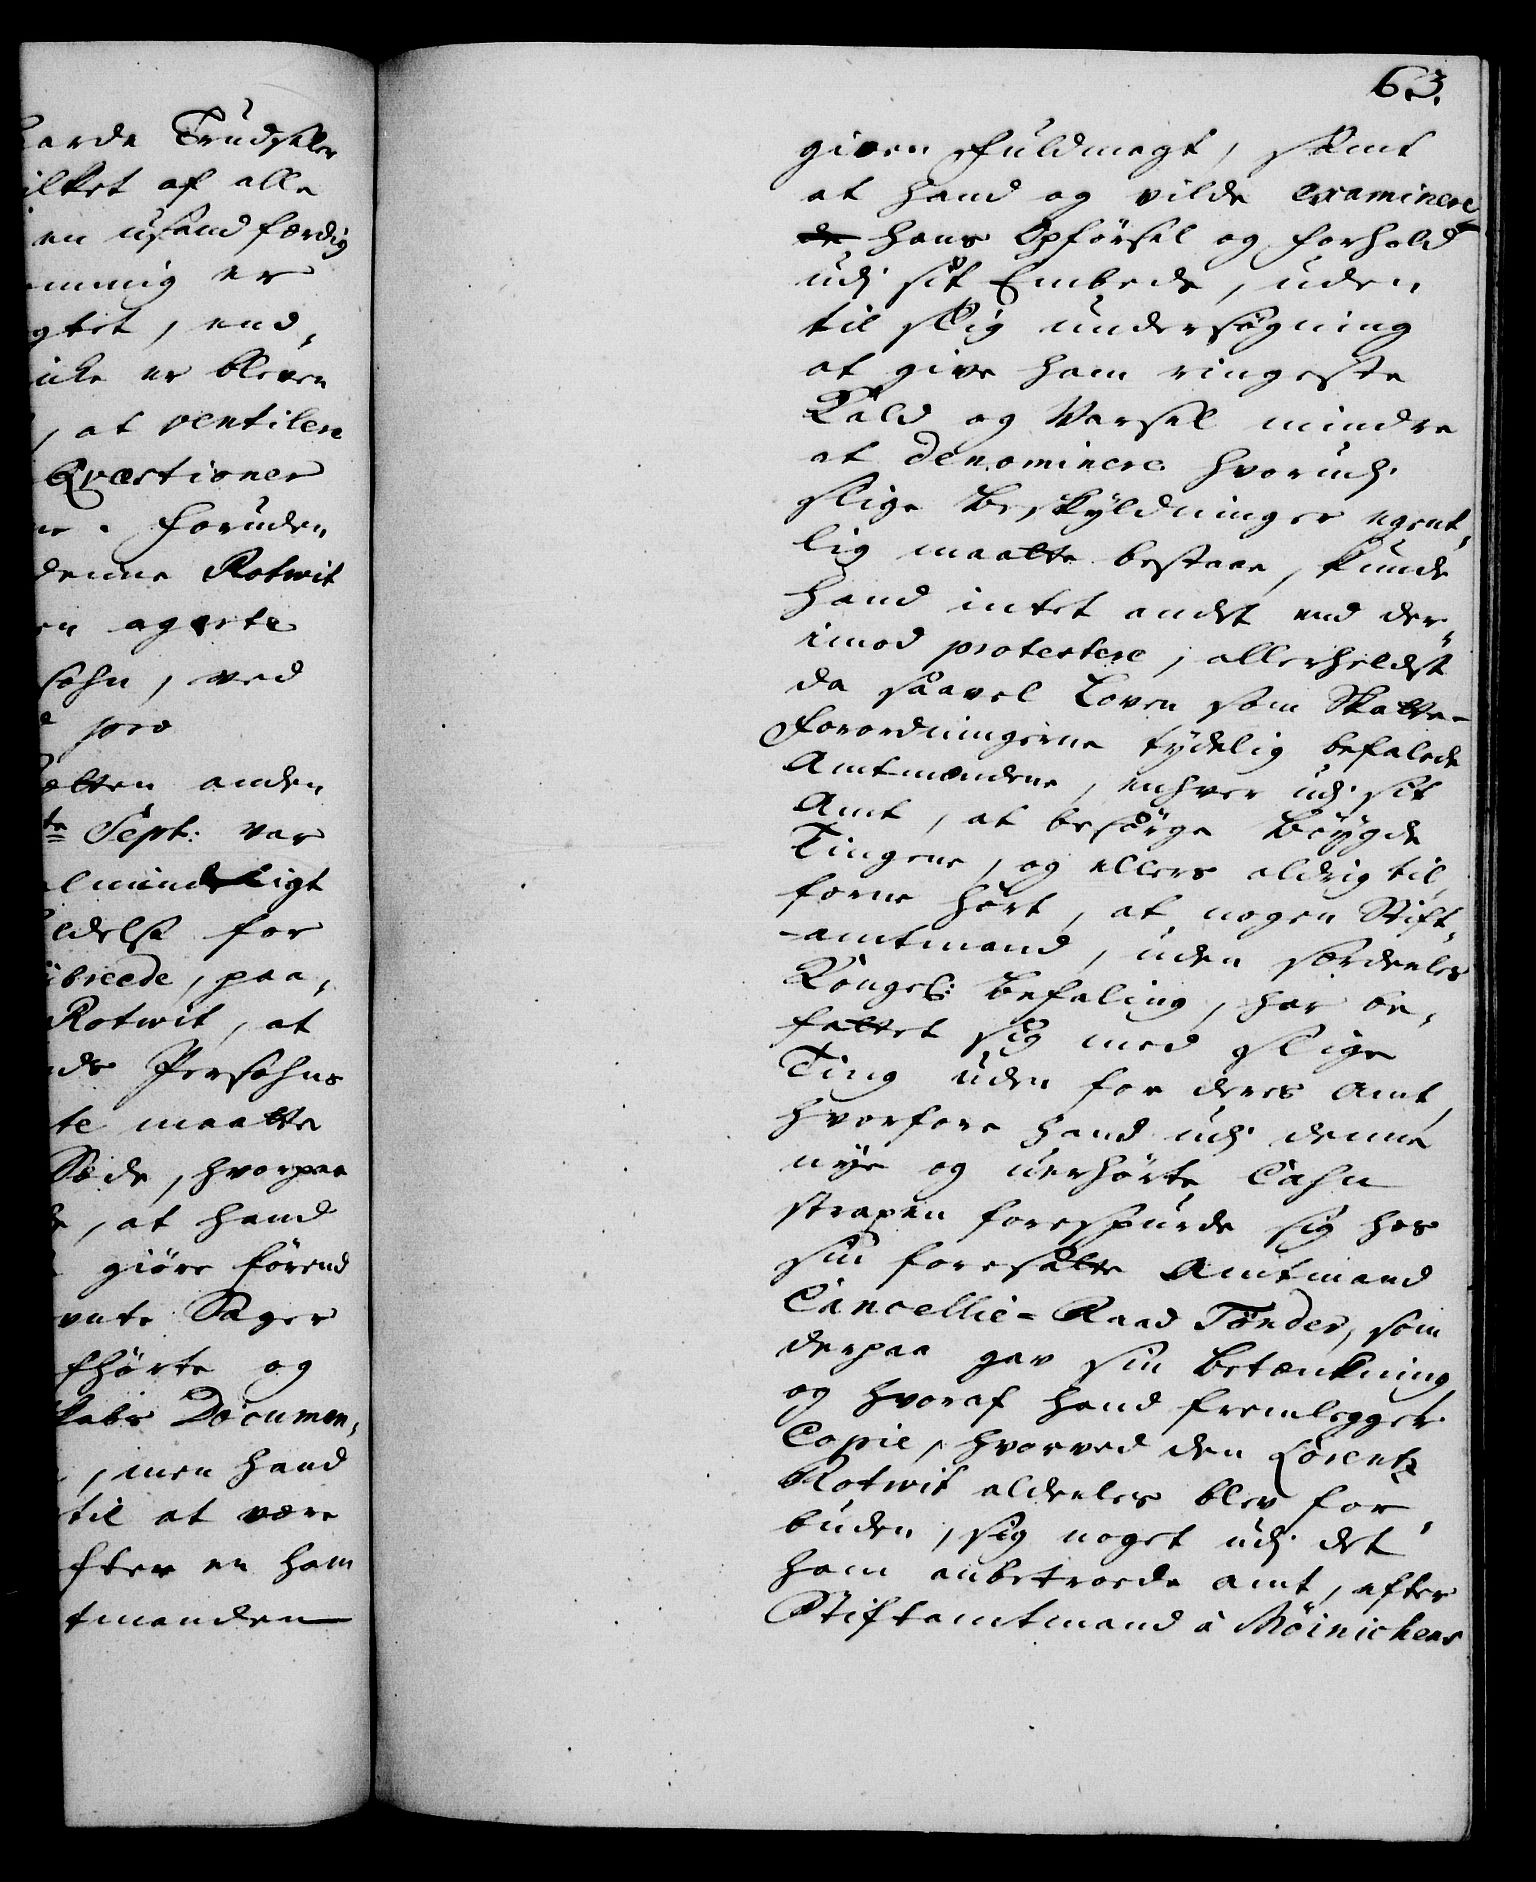 harde Trudseler
ilket af alle
en usandfærdig
emmig er
gtet, end,
icke er bleven
, at ventilere
Qvæstioner
er. foruden
denne Rotwit
en agerte
sohn, ved
pro
ætten anden
te Sept: var
almindeligt
ldelse for
breede, paa,
Rotwit, at
nds Persohns
te maatte
Sæde, hvorpaa
, at hand
giöre förend
nte Sager
fhörte og
skabs Documen,
, men hand
til at være
fter en ham
tmanden
63.
given Fuldmagt, samt
at hand og vilde examinere
de hans Opförsel og forhold
udj sit Embede, uden
til slig undersögning
at give ham ringeste
Kald og Varsel mindre
at denominere hvorudj
slige Beskyldninger egent,
lig maatte bestaae, kunde
hand intet andet end der,
imod protestere, allerheldst
da saavel Loven som Skatte-
Forordningerne tydelig befalede
Amtmændene, enhver udj sit
Amt, at besörge Böygde
Tingene, og ellers aldrig til,
forne hört, at nogen Stift,
-amtmand, uden særdeeles
Kongel: Befaling, har be,
fattet sig med slige
Ting uden for deres Amt,
hvorfore hand udj denne
nye og uerhörte Casu
strapen forespurde sig hos
sin foresatte Amtmand
Cancellie-Raad Tønder, som
derpaa gav sin Betænkning,
og hvoraf hand fremlegger
Copie, hvorved den Lorentz
Rotwit aldeeles blev for,
buden, sig noget udj det
ham anbetroede Amt, efter
Stiftamtmand á Möinichens